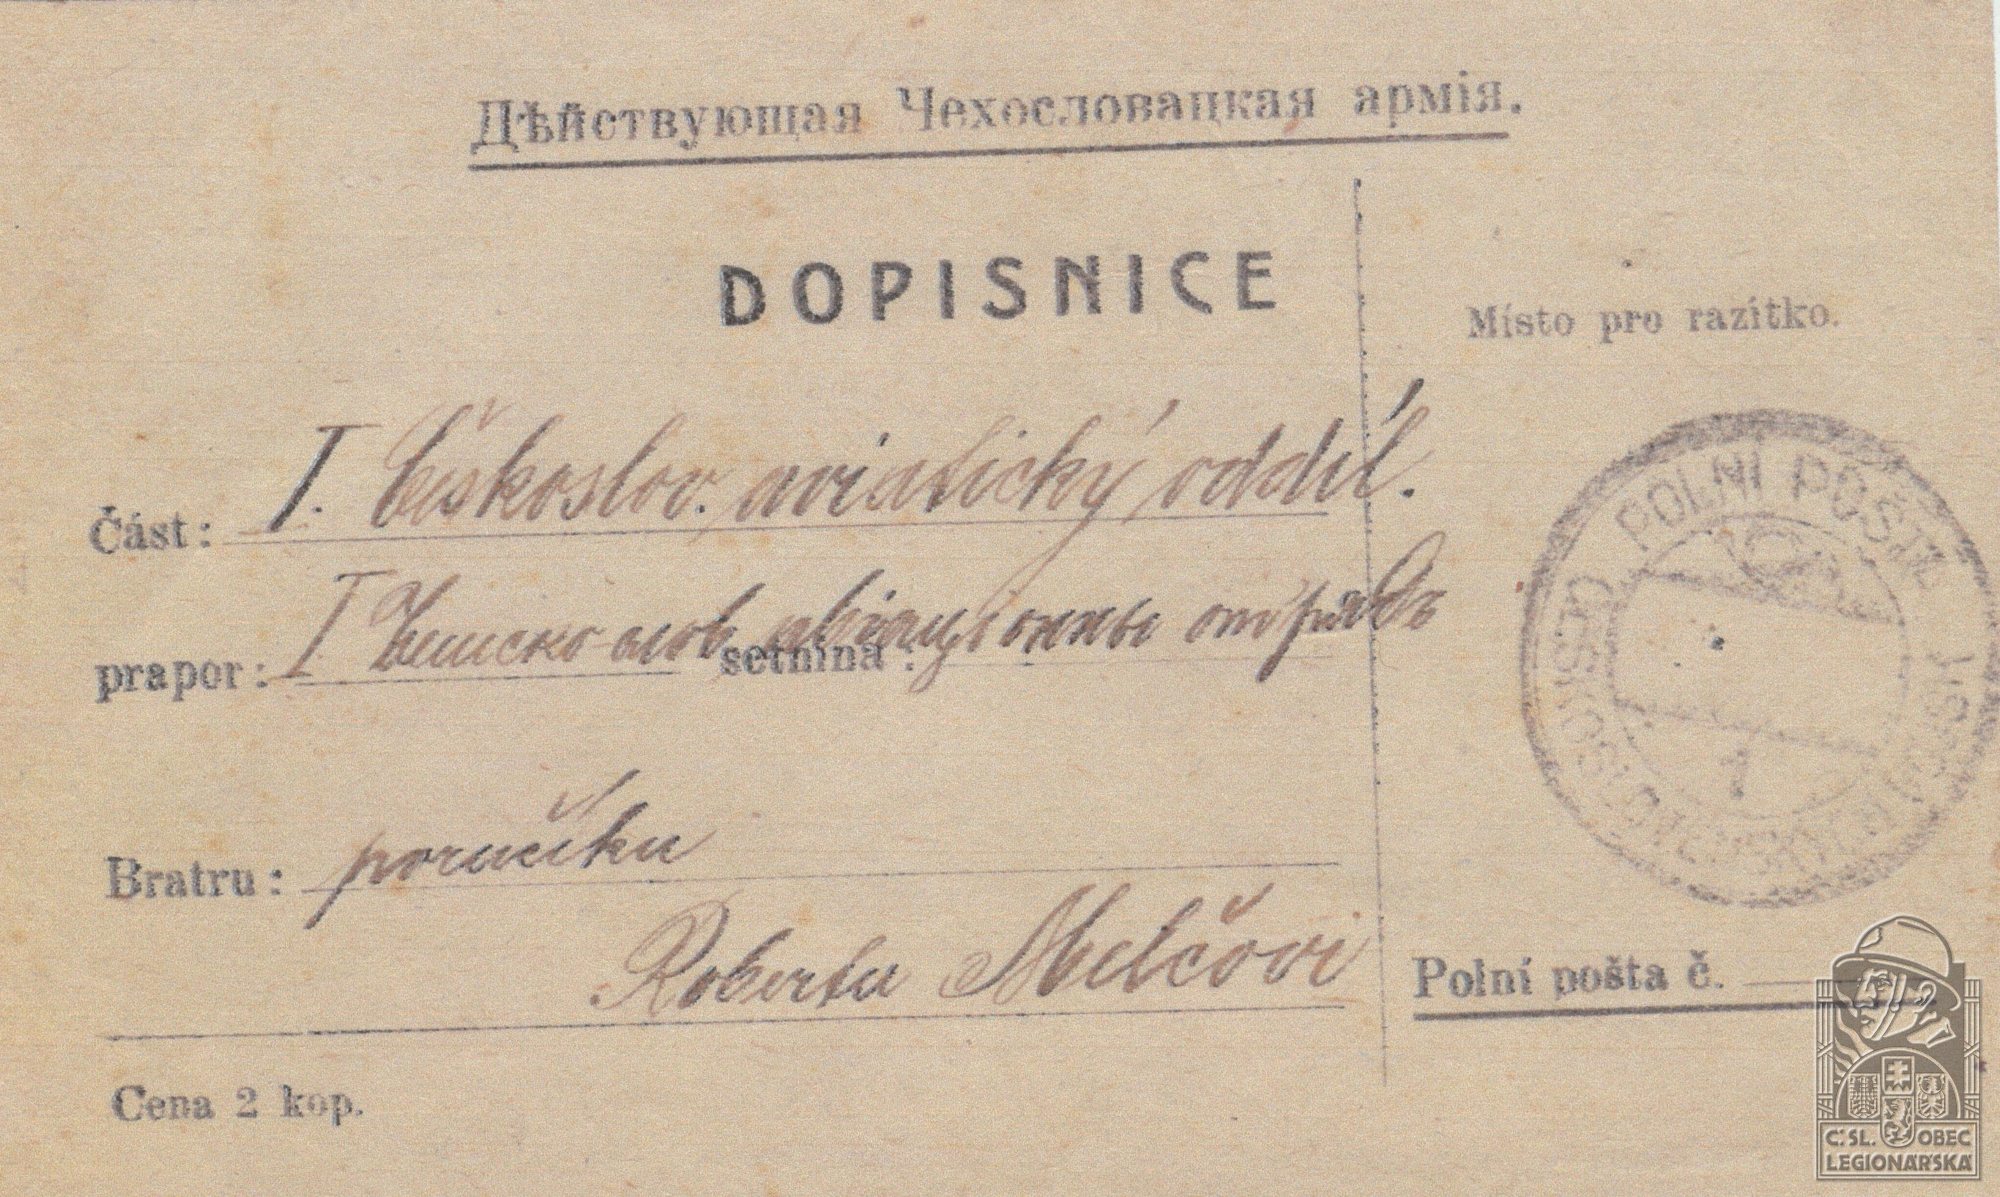 Дѣйствующая Чехословацкая армія.
DOPISNICE
Místo pro razítko.
Část: I. českoslov. aviatický oddíl.
prapor: I Чешско-слов авіаціонны отрядъ
setnina:
POLNÍ POŠTA
ČESKOSLOVENSKÉHO VOJSKA
1
Bratru: poručíku
Robertu Melčovi
Polní pošta č.
Cena 2 kop.
Č. SL. OBEC
LEGIONÁŘSKÁ